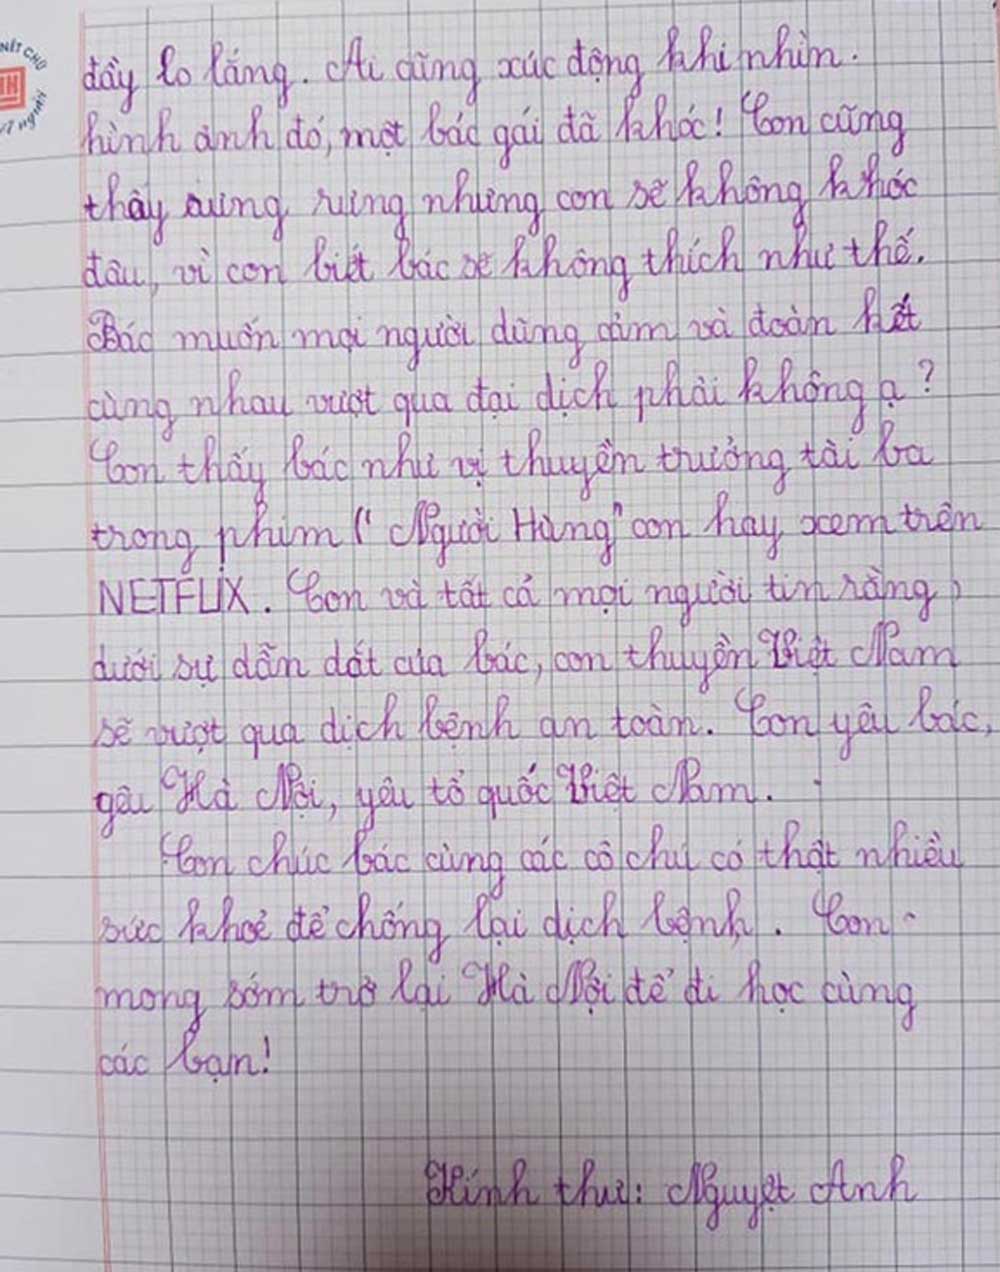 NÉT CHỮ
đầy lo lắng. Ai cũng xúc động khi nhìn.
hình ảnh đó, một bác gái đã khóc! Con cũng
thấy rưng rưng nhưng con sẽ không khóc
đâu, vì con biết bác sẽ không thích như thế.
Bác muốn mọi người dũng cảm và đoàn kết
cùng nhau vượt qua đại dịch phải không ạ?
Con thấy bác như vị thuyền trưởng tài ba
trong phim "Người Hùng" con hay xem trên
NETFLIX. Con và tất cả mọi người tin rằng,
dưới sự dẫn dắt của bác, con thuyền Việt Nam
sẽ vượt qua dịch bệnh an toàn. Con yêu bác,
yêu Hà Nội, yêu tổ quốc Việt Nam.
Con chúc bác cùng các cô chú có thật nhiều
sức khoẻ để chống lại dịch bệnh. Con
mong sớm trở lại Hà Nội để đi học cùng
các bạn!
Kính thư: Nguyệt Anh